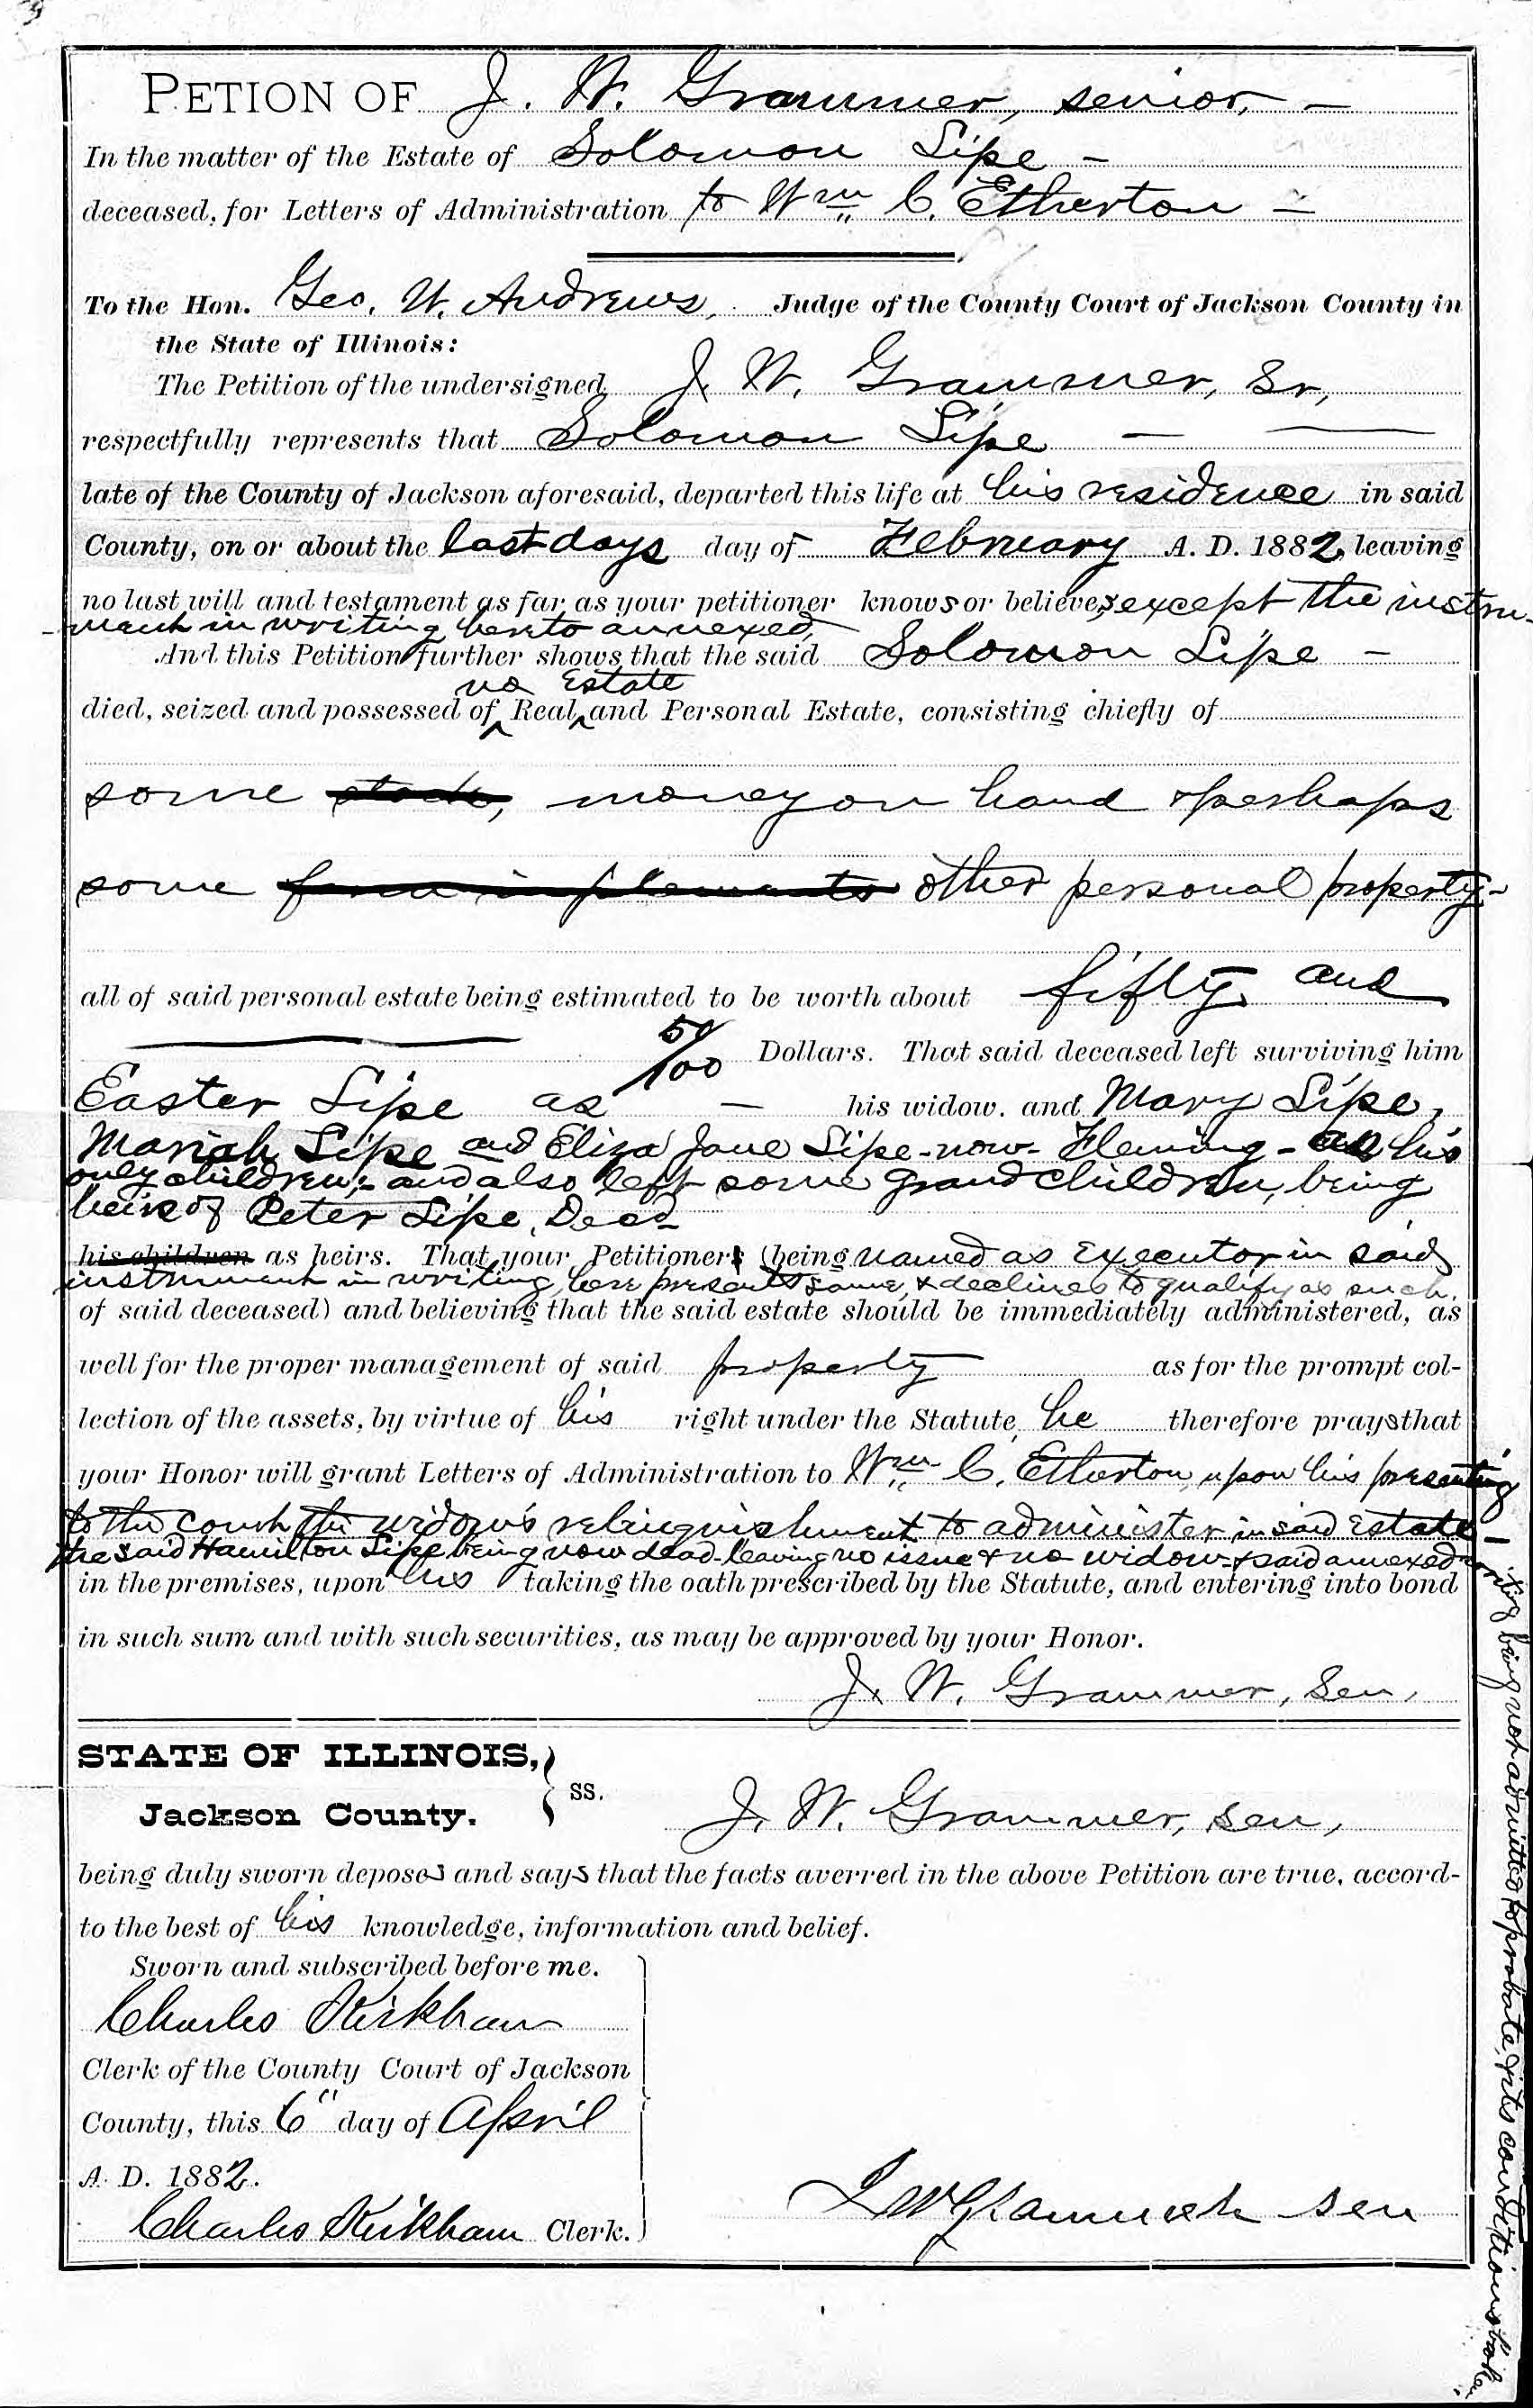 PETION OF J. W. Grammer, senior, —
In the matter of the Estate of Solomon Lipe —
deceased, for Letters of Administration to Wm C. Etherton —
To the Hon. Geo. W. Andrews, Judge of the County Court of Jackson County in
the State of Illinois:
The Petition of the undersigned J. W. Grammer, Sr,
respectfully represents that Solomon Lipe — —
late of the County of Jackson aforesaid, departed this life at his residence in said
County, on or about the last days day of February A. D. 1882, leaving
no last will and testament as far as your petitioner knows or believes, except the instru-
ment in writing hereto annexed,
And this Petition further shows that the said Solomon Lipe —
no Estate
died, seized and possessed of Real and Personal Estate, consisting chiefly of
some stock, money on hand & perhaps
some farm implements other personal property-
all of said personal estate being estimated to be worth about fifty and
50/100 Dollars. That said deceased left surviving him
Easter Lipe as — his widow. and Mary Lipe,
Mariah Lipe and Eliza Jane Lipe-now-Fleming- as his
only children;- and also left some grand children, being
heirs of Peter Lipe, Dead
his children as heirs. That your Petitioner (being named as Executor in said
instrument in writing, here presents same, & declines to qualify as such.
of said deceased) and believing that the said estate should be immediately administered, as
well for the proper management of said property as for the prompt col-
lection of the assets, by virtue of his right under the Statute, he therefore prays that
your Honor will grant Letters of Administration to Wm C. Etherton, upon his presenting
to the court the widow's relinquishment to administer in said Estate —
the said Hamilton Lipe being now dead-leaving no issue & no widow-& said annexed
in the premises, upon his taking the oath prescribed by the Statute, and entering into bond
in such sum and with such securities, as may be approved by your Honor.
J. W. Grammer, Sen,
STATE OF ILLINOIS,
Jackson County. } SS.
J. W. Grammer, sen,
being duly sworn deposes and says that the facts averred in the above Petition are true, accord-
to the best of his knowledge, information and belief.
Sworn and subscribed before me.
Charles Kirkham
Clerk of the County Court of Jackson
County, this 6" day of April
A. D. 1882.
Charles Kirkham Clerk.
J W Grammer sen
writing being not admitted to probate, & its conditions